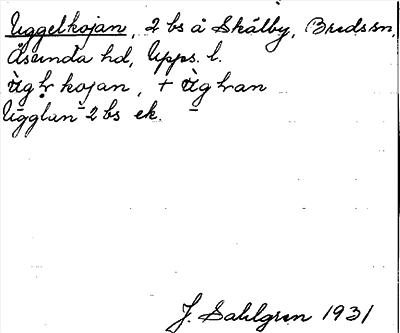 Uggelkojan, 2 bs å Skälby, Breds sn,
Åsunda hd, Upps. l.
ùg ḷr kojan, + ùg ḷran
Ugglan 2 bs ek.
J. Sahlgren 1931